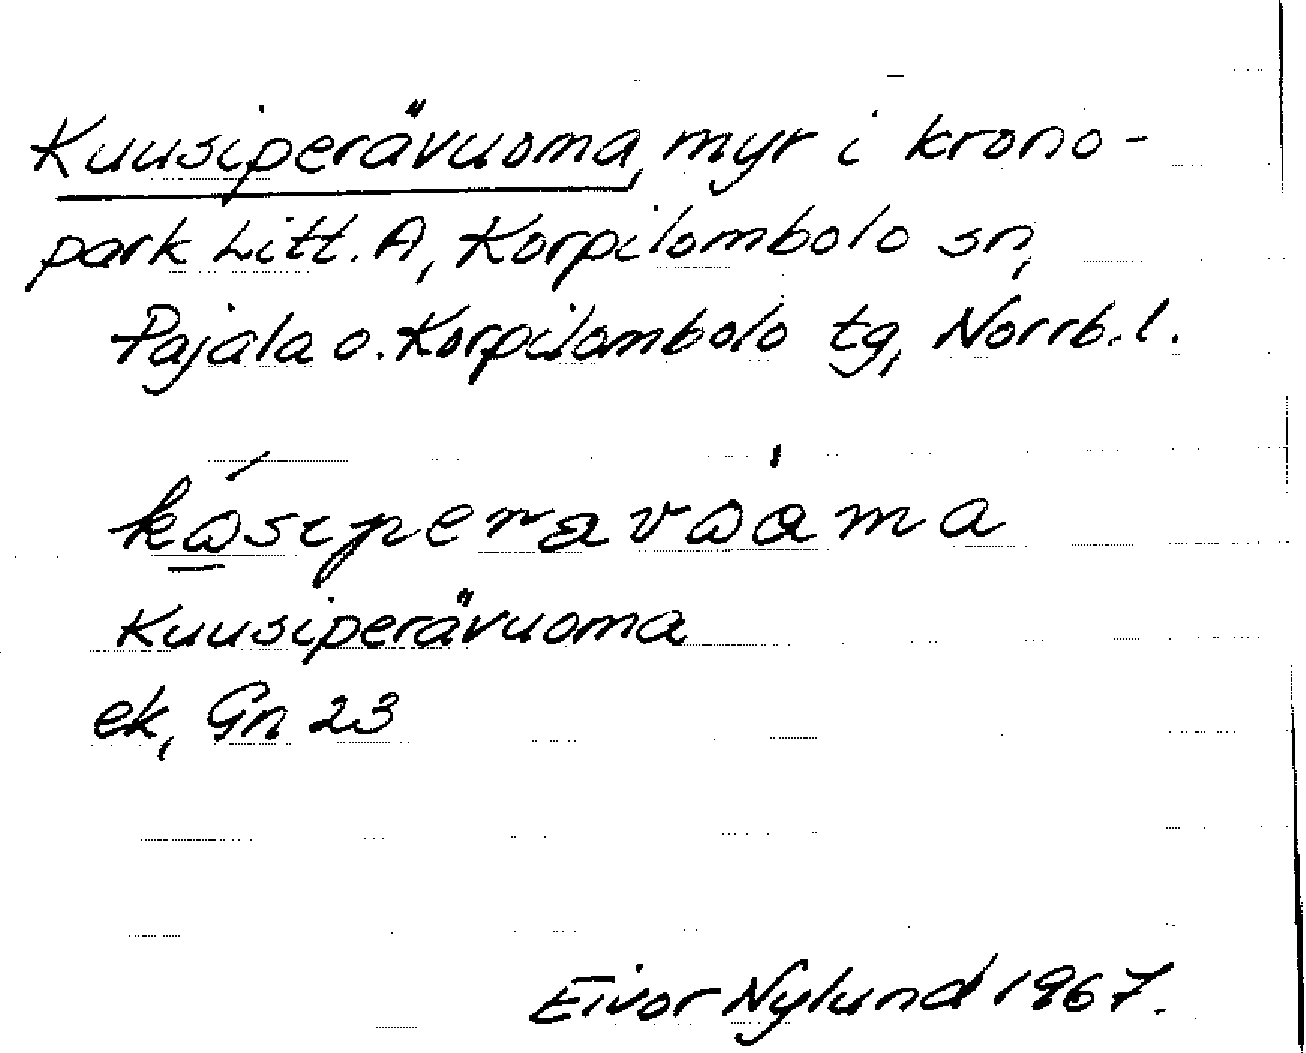 Kuusiperävuoma, myr i krono-
park Litt. A, Korpilombolo sn,
Pajala o. Korpilombolo tg, Norrb. l.
Kuusiperävuoma
ek, Gn 23
Eivor Nylund 1967.